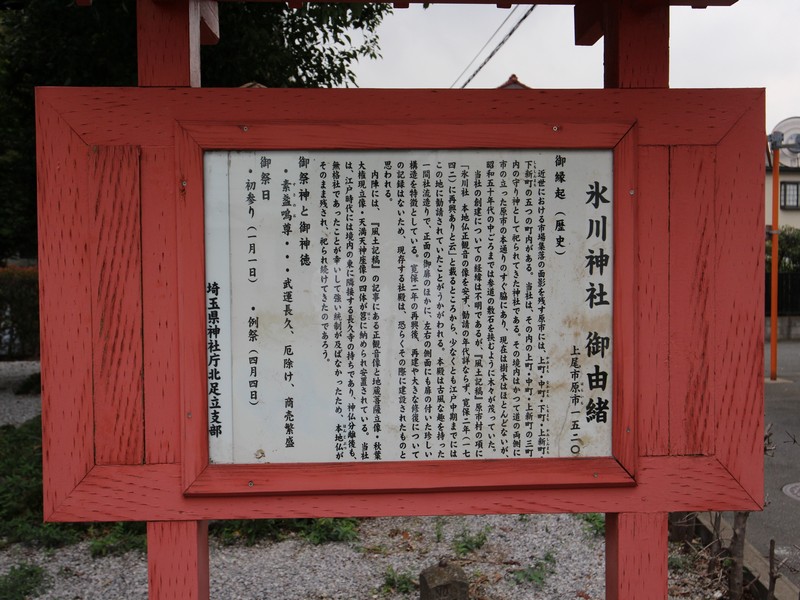 氷川神社 御由緒
上尾市原市一五二〇
御縁起（歴史）
近世における市場集落の面影を残す原市には、上町・中町・下町・上新町・
下新町の五つの町内がある。当社は、その内の上町・中町・上新町の三町
内の守り神として祀られてきた神社である。その境内はかつて道の両側に
市の立った原市の本通りのすぐ脇にあり、現在は樹木はほとんどないが、
昭和五十年代の中ごろまでは参道の敷石を挟むように木々が茂っていた。
当社の創建についての経緯は不明であるが、『風土記稿』原市村の項に
「氷川社 本地仏正観音の像を安ず、勧請の年代詳ならず、寛保二年（一七
四二）に再興ありと云」と載るところから、少なくとも江戸中期までには
この地に勧請されていたことがうかがわれる。本殿は古風な趣を持った
一間社流造りで、正面の御扉のほかに、左右の側面にも扉の付いた珍しい
構造を特徴としている。寛保二年の再興後、再建や大きな修復について
の記録はないため、現存する社殿は、恐らくその際に建設されたものと
思われる。
内陣には、『風土記稿』の記事にある正観音像と地蔵菩薩立像・秋葉
大権現立像・天満天神座像の四体が筥に納められ安置されている。当社
は、江戸時代には境内の東に隣接する長久寺の持ちであり、神仏分離後も、
無格社であったことが幸いして強い統制が及ばなかったため、本地仏が
そのまま残され、祀られ続けてきたのであろう。
御祭神と御神徳
・素盞嗚尊・・・武運長久、厄除け、商売繁盛
御祭日
・初参り（一月一日） ・例祭（四月四日）
埼玉県神社庁北足立支部